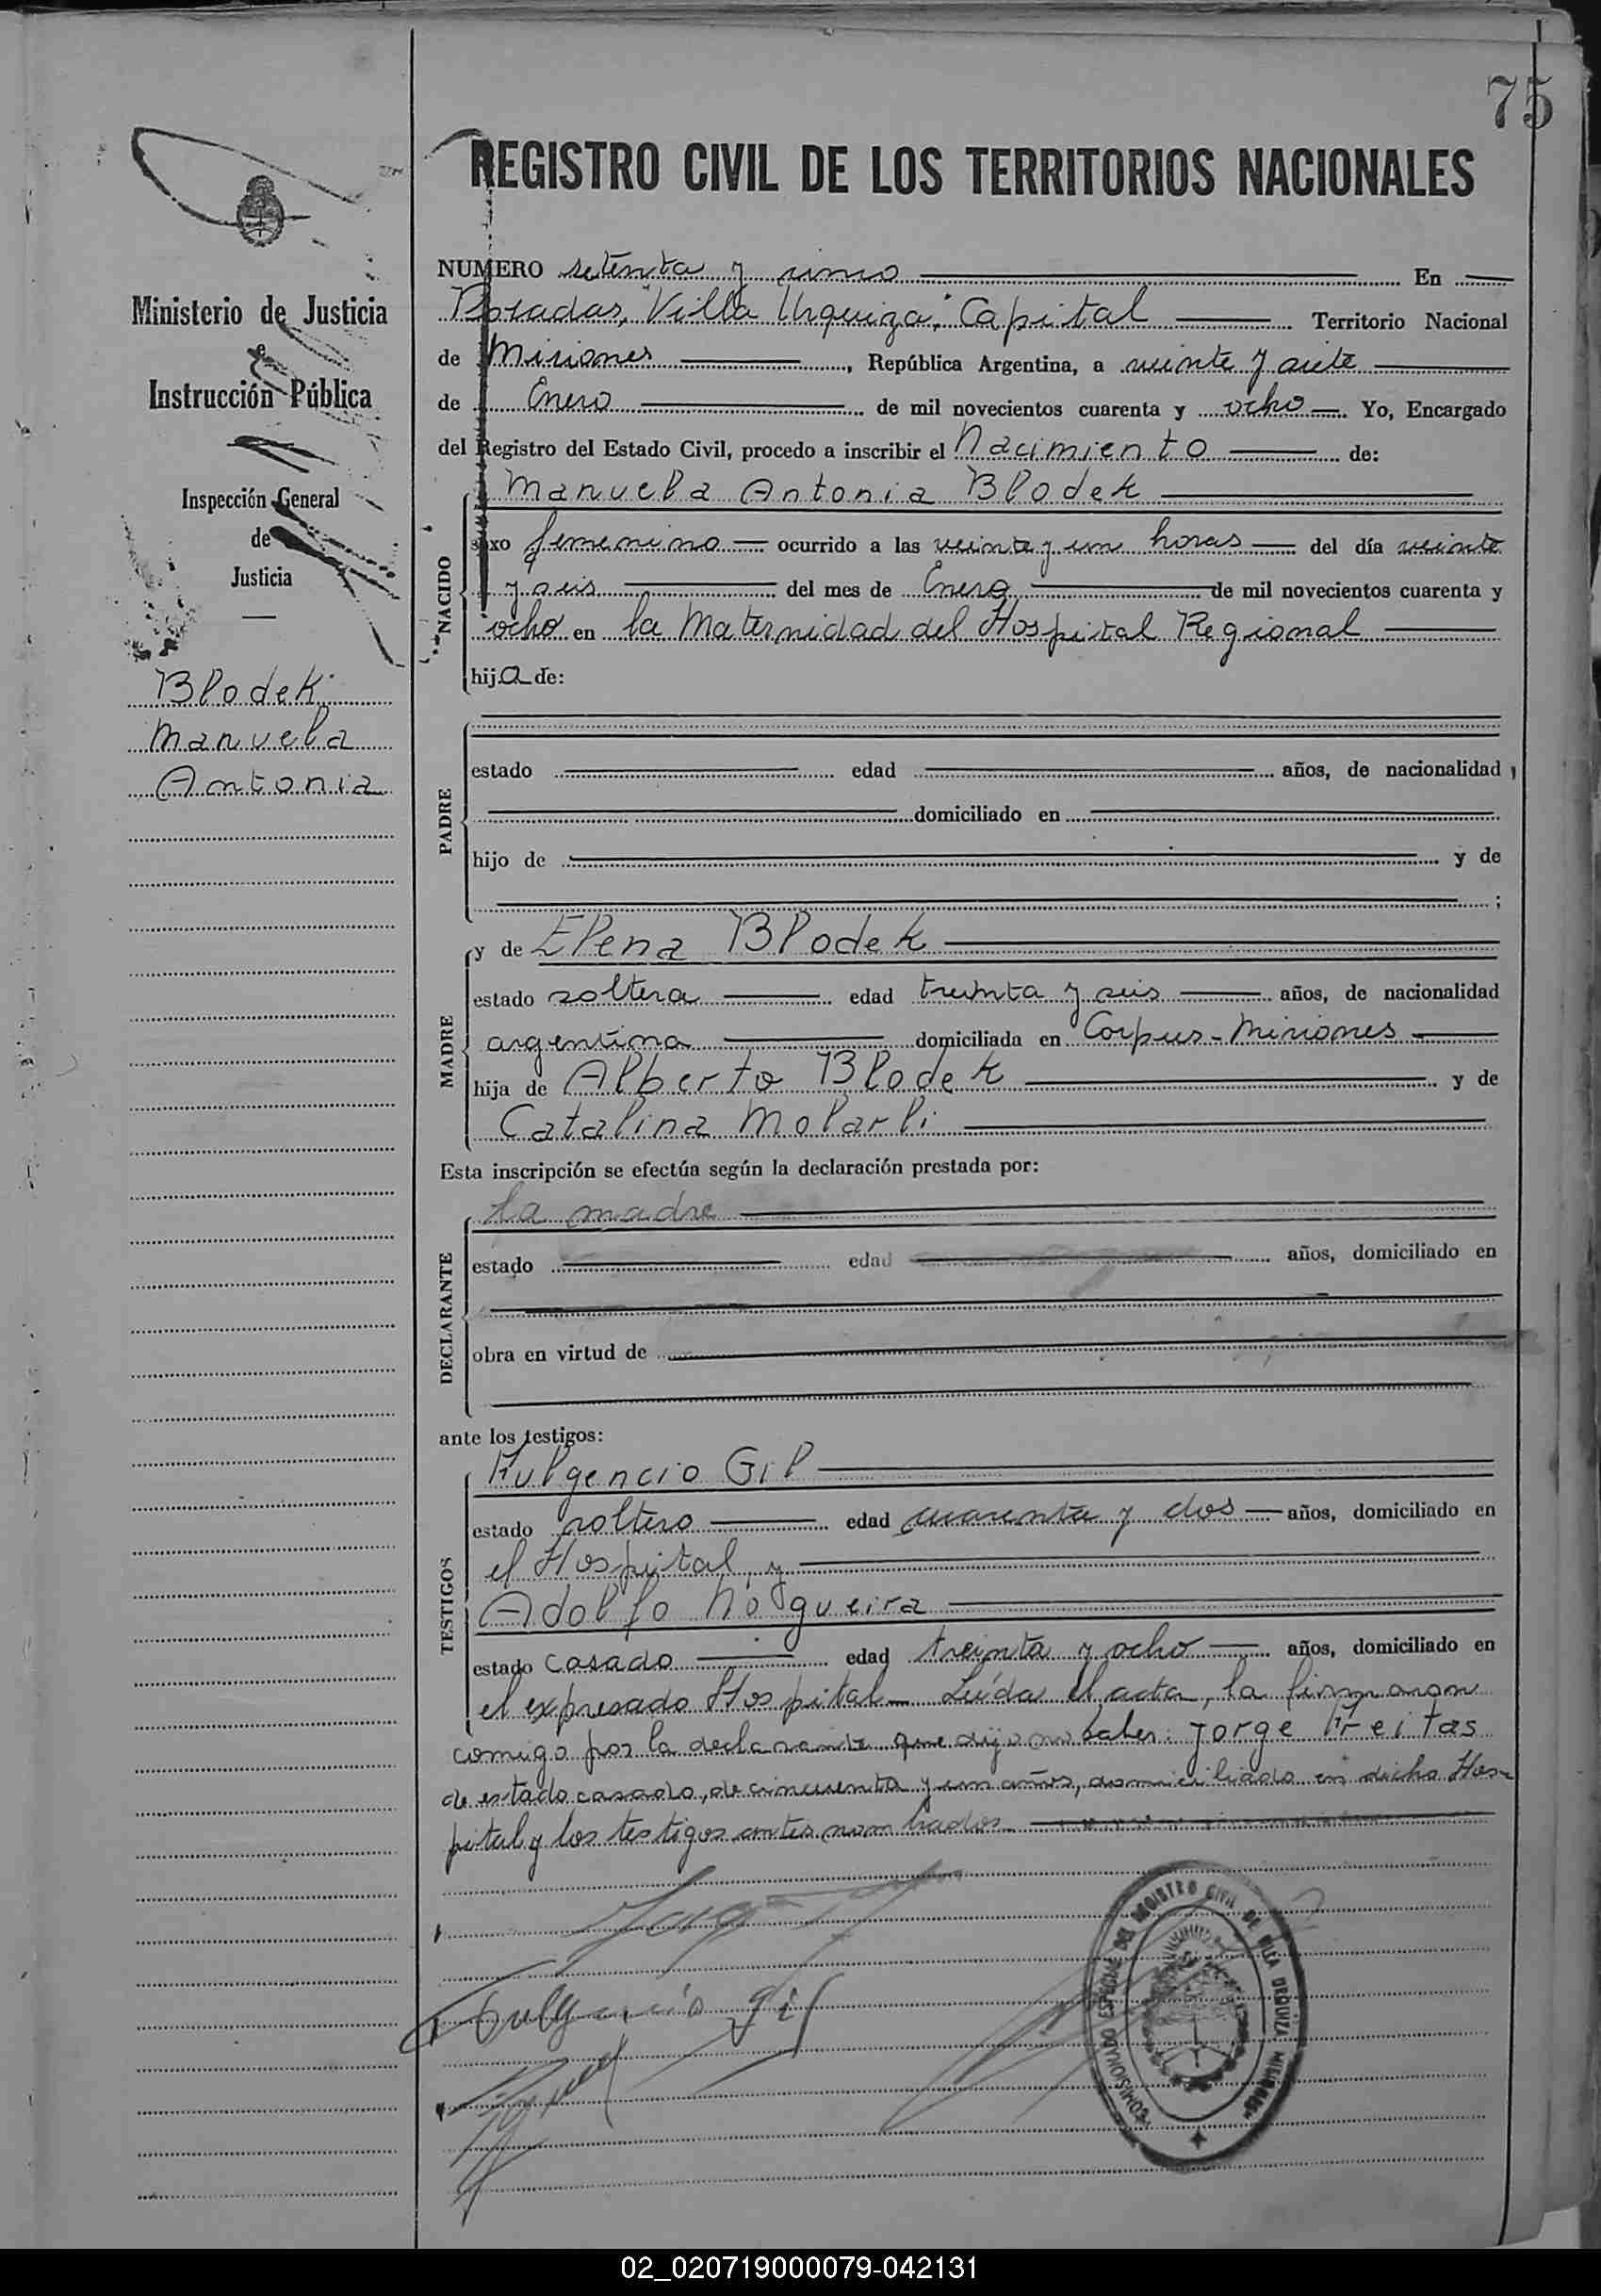 75
REGISTRO CIVIL DE LOS TERRITORIOS NACIONALES
Ministerio de Justicia
e
Instrucción Pública
Inspección General
de
Justicia
Blodek
Manuela
Antonia
NUMERO setenta y cinco En
Posadas, "Villa Urquiza", Capital Territorio Nacional
de Misiones, República Argentina, a veinte y siete
de Enero de mil novecientos cuarenta y ocho. Yo, Encargado
del Registro del Estado Civil, procedo a inscribir el Nacimiento de:
Manuela Antonia Blodek
NACIDO
sexo femenino ocurrido a las veinte y un horas del día veinte
y seis del mes de Enero de mil novecientos cuarenta y
ocho en la Maternidad del Hospital Regional
hija de:
PADRE
estado edad años, de nacionalidad
domiciliado en
hijo de y de
;
MADRE
y de Elena Blodek
estado soltera edad treinta y seis años, de nacionalidad
argentina domiciliada en Corpus-Misiones
hija de Alberto Blodek y de
Catalina Molarli
Esta inscripción se efectúa según la declaración prestada por:
DECLARANTE
La madre
estado edad años, domiciliado en
obra en virtud de
ante los testigos:
TESTIGOS
Fulgencio Gil
estado soltero edad cuarenta y dos años, domiciliado en
el Hospital, y
Adolfo Nogueira
estado casado edad treinta y ocho años, domiciliado en
el expresado Hospital. Leída el acta, la firmaron
comigo por la declarante que dijo no saber: Jorge Freitas
de estado casado, de cincuenta y un años, domiciliado en dicho Hos-
pital y los testigos antes nombrados.
Fulgencio Gil
COMISIONADO ESPECIAL DEL REGISTRO CIVIL DE VILLA URQUIZA MISIONES
02_020719000079-042131